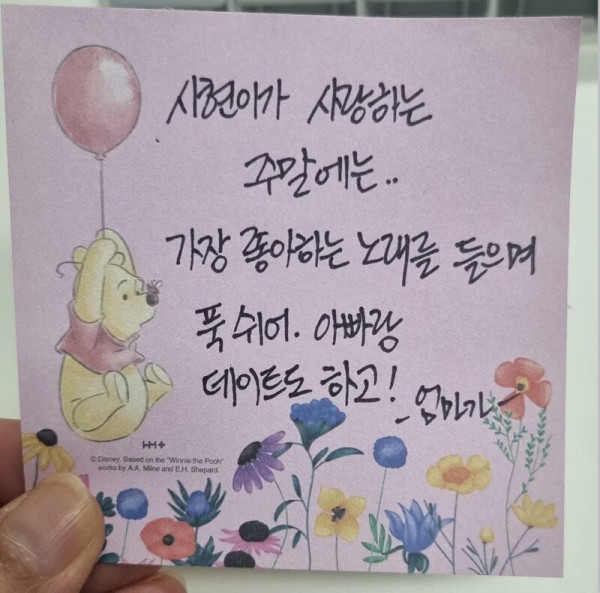 사현이가 사랑하는
주말에는..
가장 좋아하는 노래를 들으며
푹 쉬어. 아빠랑
데이트도 하고!
- 엄마가 -
WM+
© Disney. Based on the "Winnie the Pooh"
works by A.A. Milne and E.H. Shepard.